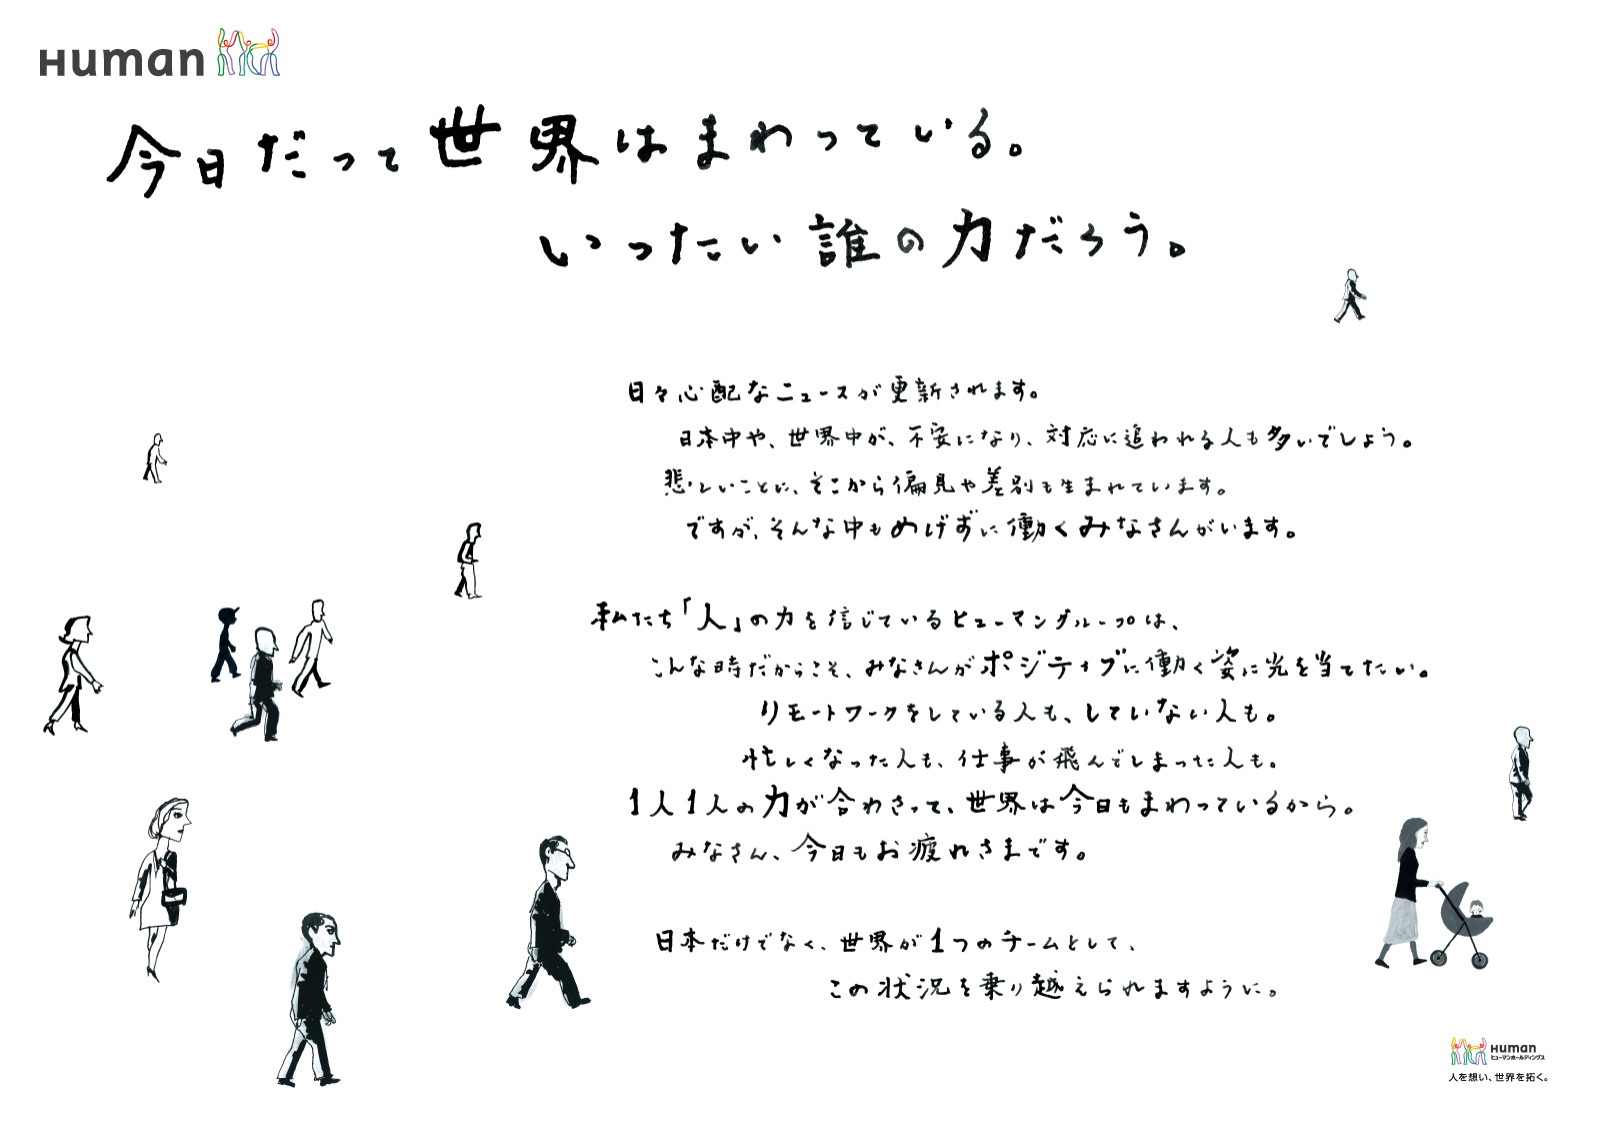 Human
今日だって世界はまわっている。
いったい誰の力だろう。
日々心配なニュースが更新されます。
日本中や、世界中が、不安になり、対応に追われる人も多いでしょう。
悲しいことに、そこから偏見や差別も生まれています。
ですが、そんな中もめげずに働くみなさんがいます。
私たち「人」の力を信じているヒューマングループは、
こんな時だからこそ、みなさんがポジティブに働く姿に光を当てたい。
リモートワークをしている人も、していない人も。
忙しくなった人も、仕事が飛んでしまった人も。
1人1人の力が合わさって、世界は今日もまわっているから。
みなさん、今日もお疲れさまです。
日本だけでなく、世界が1つのチームとして、
この状況を乗り越えられますように。
Human
ヒューマンホールディングス
人を想い、世界を拓く。